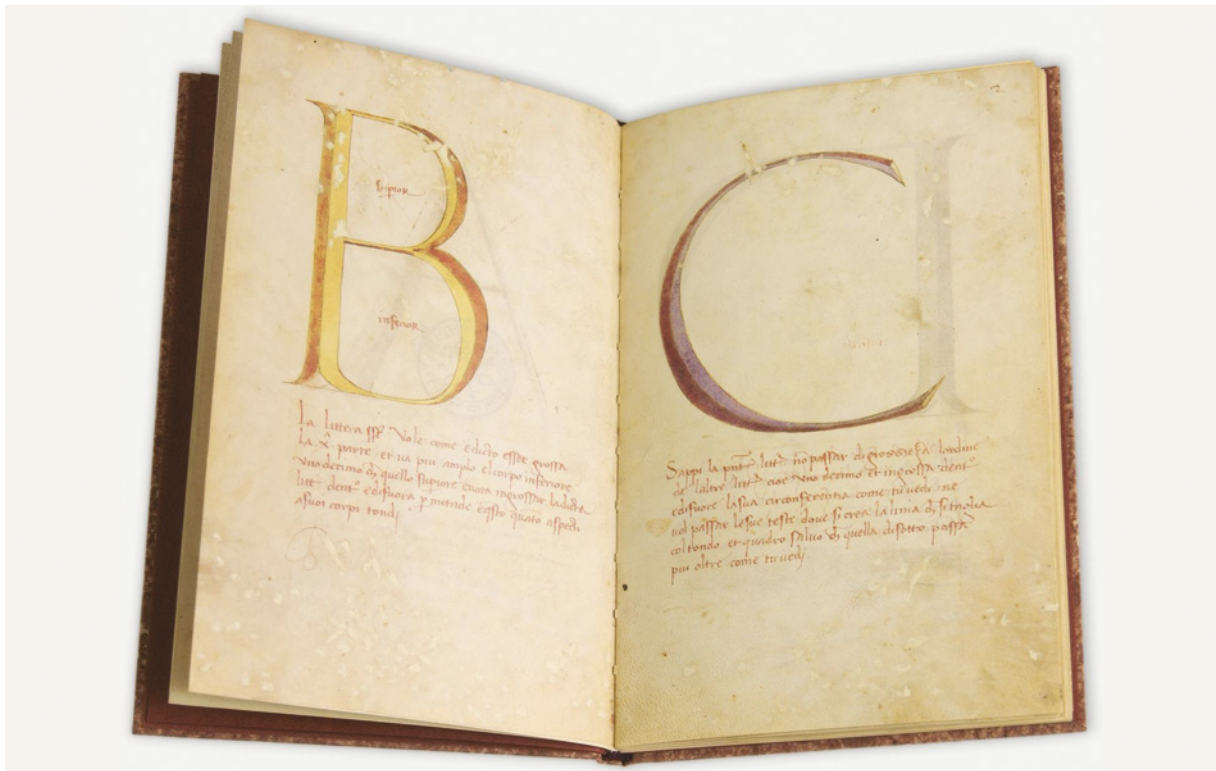 B
superior
inferior
La littera sse vole come edicto essere grossa
la x parte et va piu amplo el corpo inferiore
uno decimo di quello supiore et vora ingrossar la dicta
litt dent edifuora
asuoi corpi tondi
C
Sappi la pnte litt no passar di grossezza lordine
de laltre litt cioe uno decimo et ingrossa dent
edifuore lasua circonferentia come tu vedi ne
vol passar lesue teste dove si crea la linia
col tondo et quadro salvo di quella disotto passa
piu oltre come tu vedi